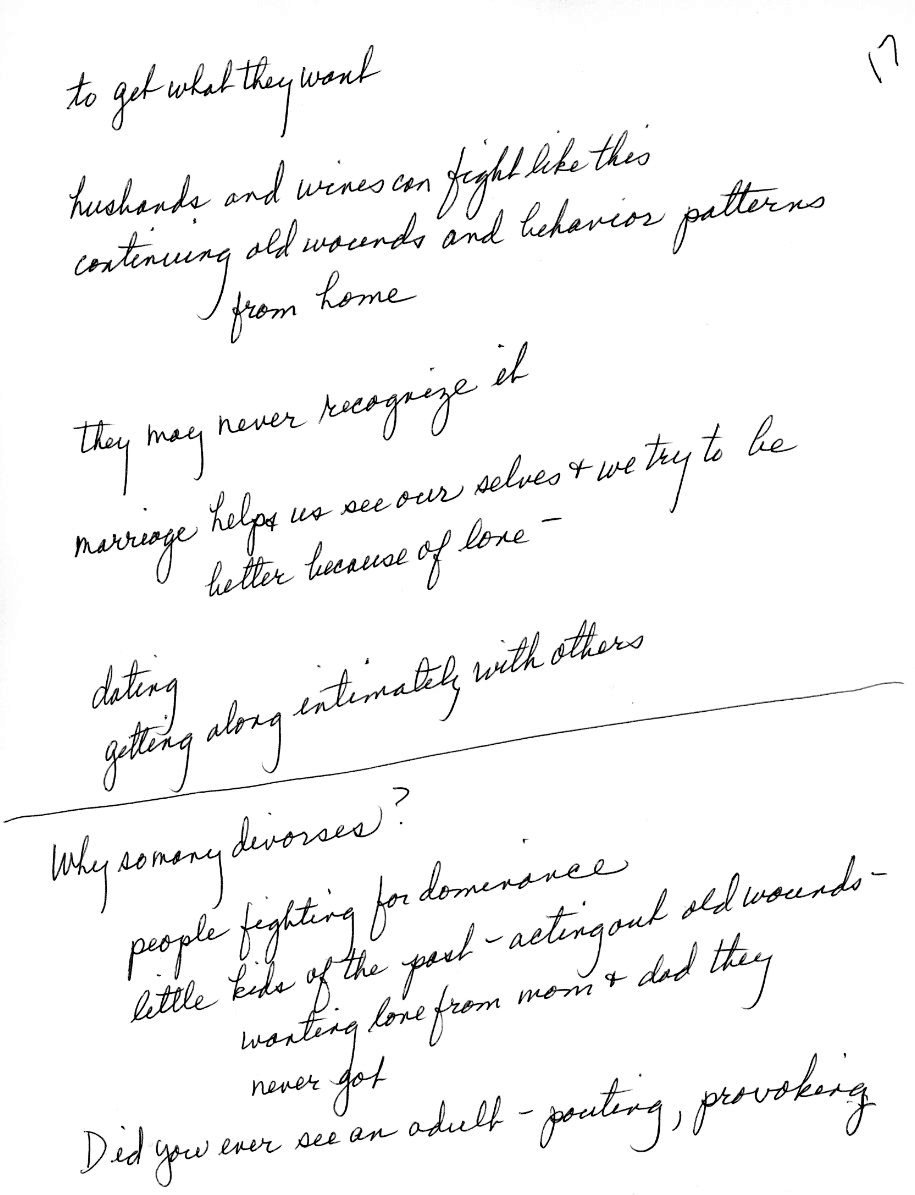 17
to get what they want
husbands and wives can fight like this
continuing old wounds and behavior patterns
from home
they may never recognize it
marriage helps us see our selves & we try to be
better because of love –
dating
getting along intimately with others
Why so many divorses?
people fighting for dominance
little kids of the past – acting out old wounds –
wanting love from mom & dad they
never got
Did you ever see an adult – pouting, provoking